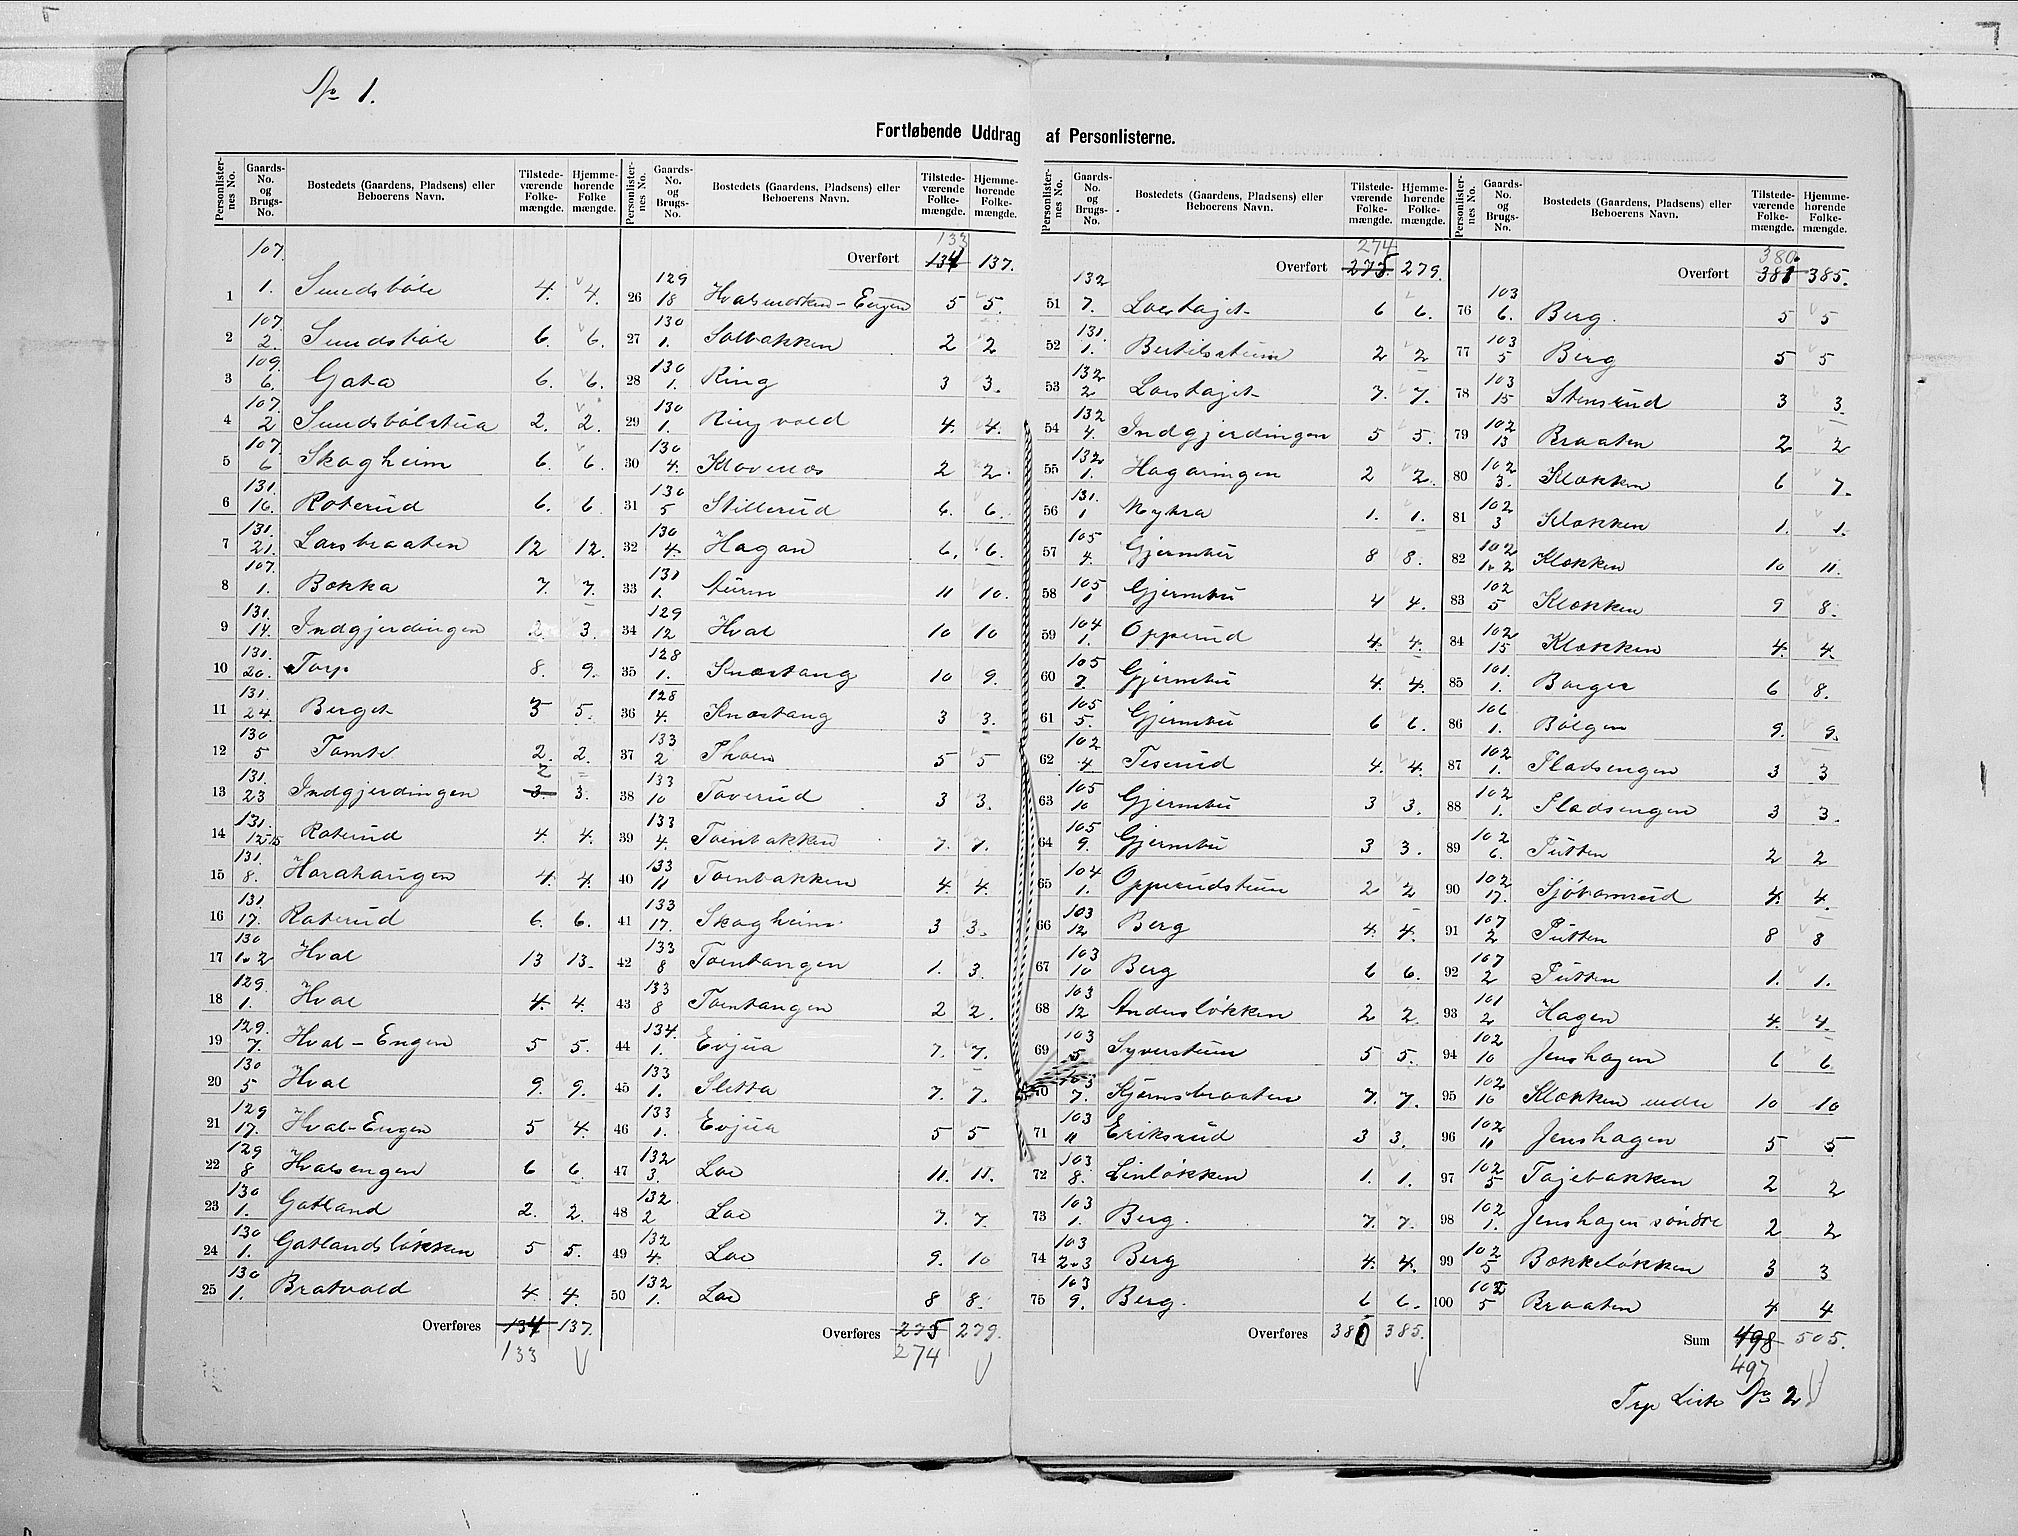 No 1.
Fortløbende Uddrag af Personlisterne.
Personlisternes No. Gaards-No. og Brugs-No. Bostedets (Gaardens, Pladsens) eller Beboerens Navn. Tilstedeværende Folkemængde. Hjemmehørende Folkemængde.
1 107. 1. Sundsbøle 4. 4.
2 107. 2. Sundsbøle 6. 6.
3 109. 6. Gata 6. 6.
4 107. 2 Sundsbølstua 2. 2.
5 107. 6 Skagheim 6. 6.
6 131. 16. Roterud 6. 6.
7 131. 21. Larsbraaten 12 12.
8 107. 1. Bokka 7. 7.
9 131. 14. Indgjerdingen 3.
10 131. 20. Torp 8. 9.
11 131. 24 Berget 5 5.
12 130 5 Tomte 2. 2.
13 131. 23 Indgjerdingen 3. 2 3.
14 131. 12 15 Roterud 4. 4.
15 131. 8. Harahaugen 4. 4.
16 131. 17. Roterud 6. 6.
17 130 1.2 Hval 13 13.
18 129. 1. Hval 4. 4.
19 129. 7. Hval-Engen 5 5.
20 130 5 Hval 9. 9.
21 129 17. Hval-Engen 5 4.
22 129 8 Hvalsengen 6 6.
23 130 1. Gatland 2. 2.
24 130 1. Gatlandsløkken 5 5.
25 130 1. Bratvold 4. 4.
Overføres 134 137.
133
Personlisternes No. Gaards-No. og Brugs-No. Bostedets (Gaardens, Pladsens) eller Beboerens Navn. Tilstedeværende Folkemængde. Hjemmehørende Folkemængde.
133
Overført 134 137.
26 129 18 Hvalsmarken-Engen 5 5.
27 130 1. Solbakken 2 2
28 130 1. Ring 3 3.
29 130 1. Ringvold 4. 4.
30 130 4. Klovenes 2 2.
31 130 5 Stillerud 6. 6.
32 130 4. Hagan 6. 6.
33 131 1. 11 10.
34 129 12 Hval 10 10
35 128 1. Knæstang 10 9.
36 128 4. Knæstang 3 3.
37 133 2 Thoen 5 5
38 133 10 Toverud 3 3.
39 133 4. Toenbakken 7. 7.
40 133 11 Toenbakken 4. 4.
41 133 17. Skagheim 3 3.
42 133 8 Toentangen 1. 3.
43 133 8 Toentangen 2 2.
44 134. 1. Evjua 7. 7.
45 133 1. Sletta 7. 7.
46 133 1. Evjua 5 5
47 132 3. Loe 11. 11.
48 132. 2 Loe 7. 7.
49 132 4. Loe 9. 10
50 132 1. Loe 8 8.
Overføres 275 279.
274
Personlisternes No. Gaards-No. og Brugs-No. Bostedets (Gaardens, Pladsens) eller Beboerens Navn. Tilstedeværende Folkemængde. Hjemmehørende Folkemængde.
274
Overført 275. 279.
51 132 7. Loeshajet 6 6.
52 131. 1. Bertilsstuen 2 2
53 132 2 Loeshajet 7. 7.
54 132 4. Indgjerdingen 5 5.
55 132 1. Hagaringen 2 2.
56 131. 1 Myhra 1. 1.
57 105 4. Gjermbu 8 8.
58 105 1 Gjermbu 4 4.
59 104 1. Opperud 4. 4.
60 105 7. Gjermbu 4. 4.
61 105 5. Gjermbu 6 6.
62 102 4 Teserud 4. 4.
63 105 10 Gjermbu 3 3.
64 105 9. Gjermbu 3 3.
65 104 1. Opperudstuen 2 2
66 103 12 Berg 4. 4.
67 103 10 Berg 6 6.
68 103 12 Andersløkken 2 2.
69 103 5 Syverstuen 5 5.
70 103 7. Kjernsbraaten 7. 7.
71 103 11 Eriksrud 3 3.
72 103 8. Linløkken 1. 1.
73 103 1. Berg. 7. 7.
74 103 2.3 Berg 4. 4.
75 103 9. Berg. 6 6.
Overføres 380 385.
Personlisternes No. Gaards-No. og Brugs-No. Bostedets (Gaardens, Pladsens) eller Beboerens Navn. Tilstedeværende Folkemængde. Hjemmehørende Folkemængde.
380.
Overført 381 385.
76 103 6. Berg. 5 5
77 103 5 Berg 5 5
78 103 15 Stensrud 3 3
79 102 13 Braaten 2 2
80 102 3. Klækken 6 7.
81 102 3 Klækken 1. 1.
82 102 1.2 Klækken 10 11.
83 102 5 Klækken 9 8.
84 102 15 Klækken 4. 4.
85 101. 1. Borger 6 8.
86 106 1. Bølgen 9. 9.
87 102 1. Pladsengen 3 3
88 102 1. Pladsengen 3 3.
89 102 6. Putten 2 2
90 102 17. Sjøvamrud 4. 4.
91 107 2 Putten 8 8
92 107 2 Putten 1. 1.
93 101 2 Hagen 4. 4.
94 102 10 Jenshagen 6 6
95 102 10 Klækken nedre 10 10
96 102 11 Jenshagen 5 5
97 102 5 Tajebakken 2 2
98 102 1. Jenshagen søndre 2 2
99 102 5 Bækkeløkken 3 3
100 102 5 Braaten 4 4
Sum 498 505.
497
No 2